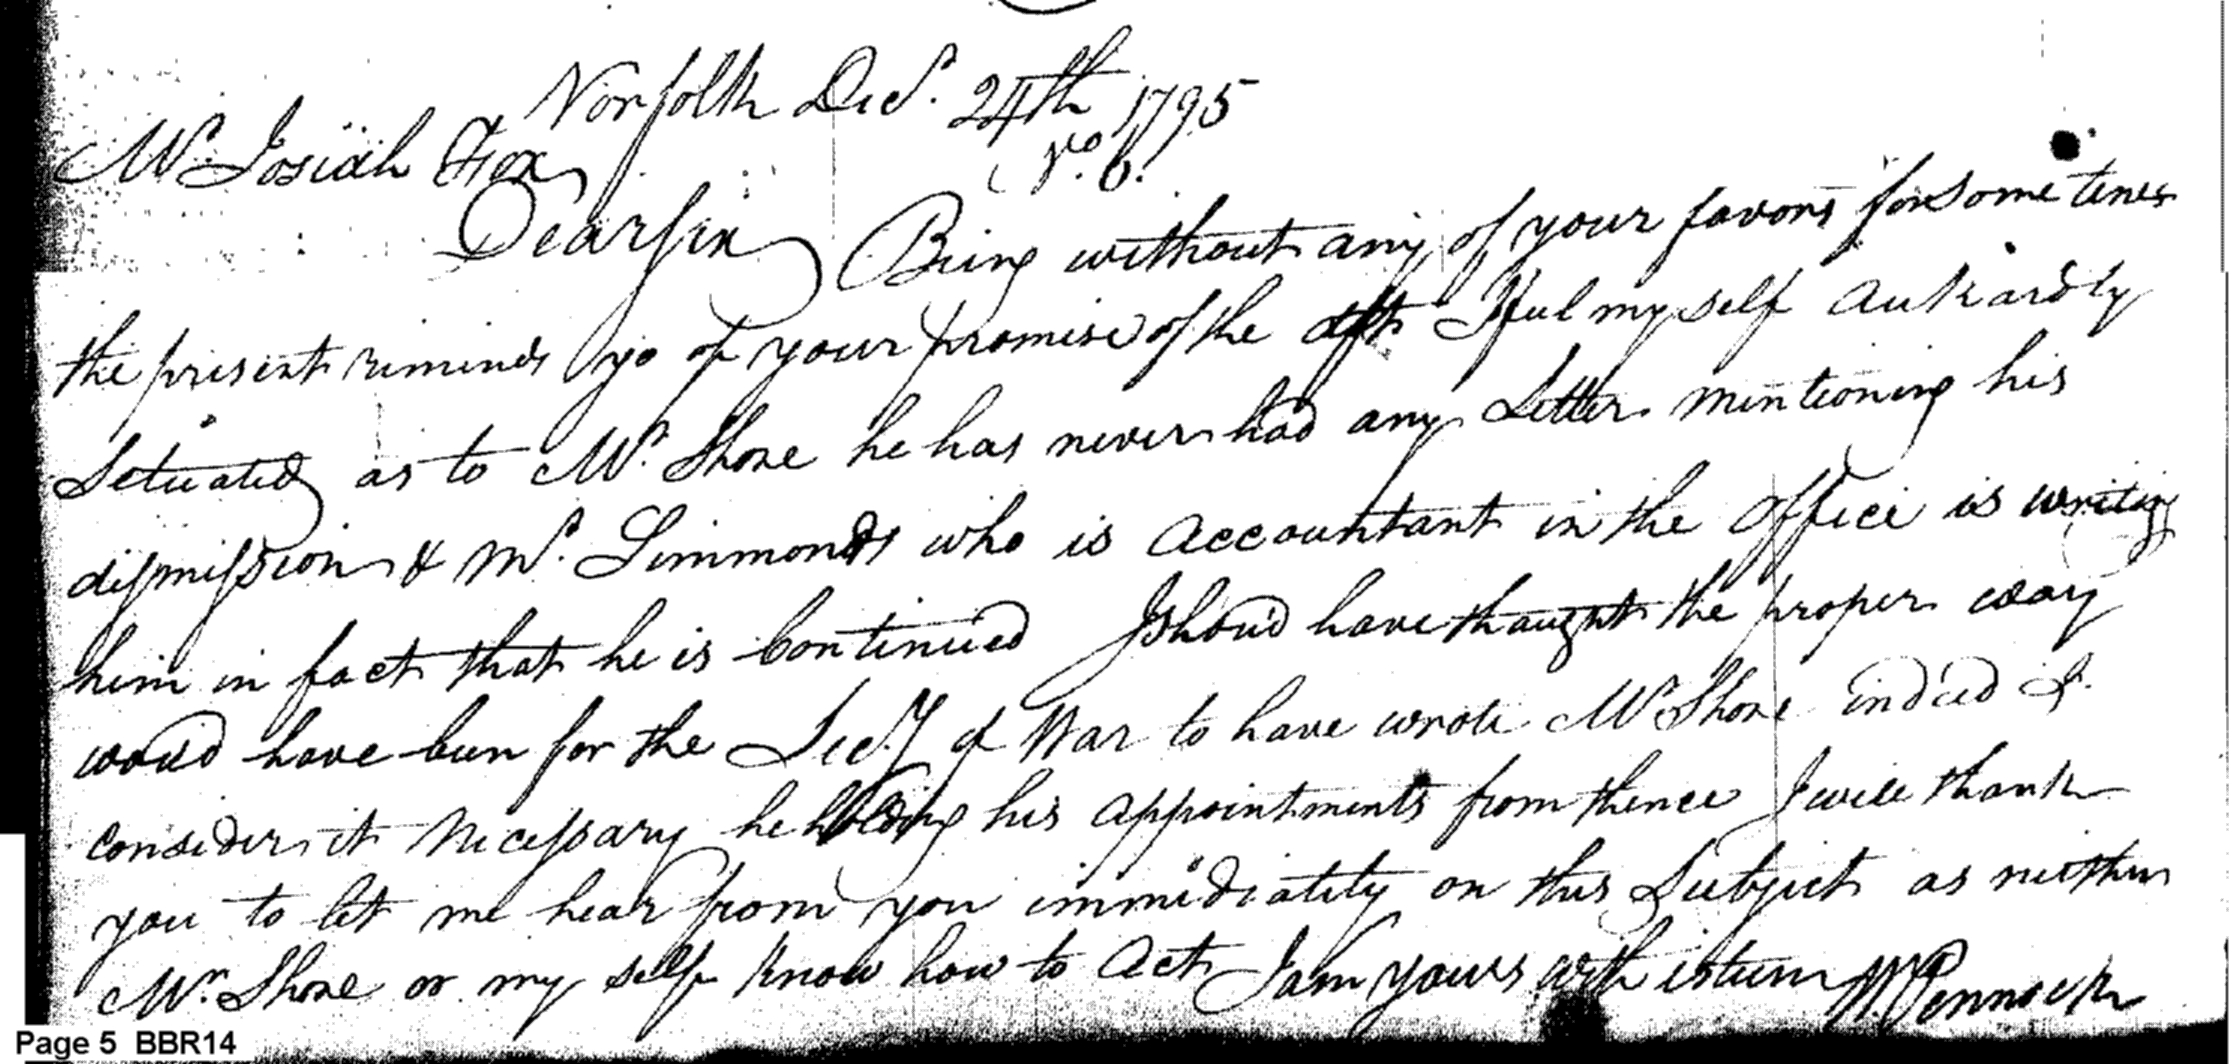 Norfolk Decr. 24th 1795
No. 6.
Mr. Josiah Fox
Dear Sir Being without any of your favors for some time
the present reminds yo of your promise of the I feel my self aukardly
Setuated as to Mr. Shore he has never had any Letter mentioning his
dismission & Mr. Simmonds who is accountant in the office is writing
him in fact that he is Continued I shou'd have thaught the proper way
wou'd have been for the Secry of War to have wrote Mr Shore indeed I
consider it Necessary he holding his appointments from thence I will thank
you to let me hear from you immediately on this Subject as neither
Mr. Shore or my self know how to act I am yours with esteem W. Pennock
Page 5 BBR14